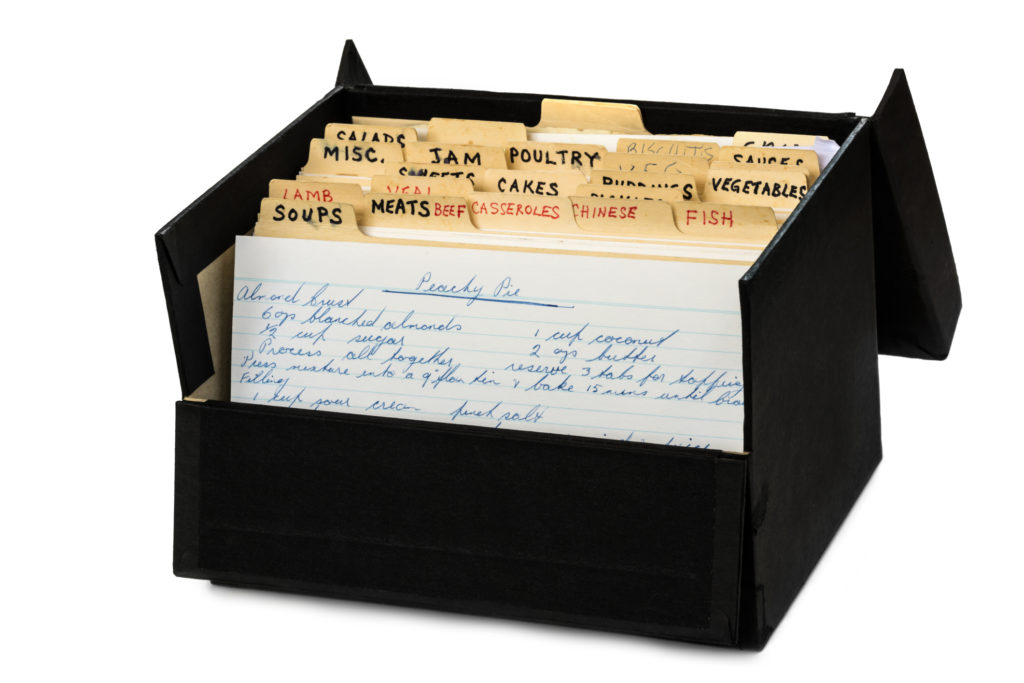 SALADS
BISCUITS
MISC. JAM POULTRY VEG SAUCES
SWEETS CAKES PUDDINGS VEGETABLES
LAMB VEAL
SOUPS MEATS BEEF CASSEROLES CHINESE FISH
Peachy Pie
Almond Crust
6 ozs blanched almonds 1 cup coconut
½ cup sugar 2 ozs butter
Process all together, reserve 3 tabs for topping
Press mixture into a 9" flan tin & bake 15 mins until brow
Filling
1 cup sour cream pinch salt